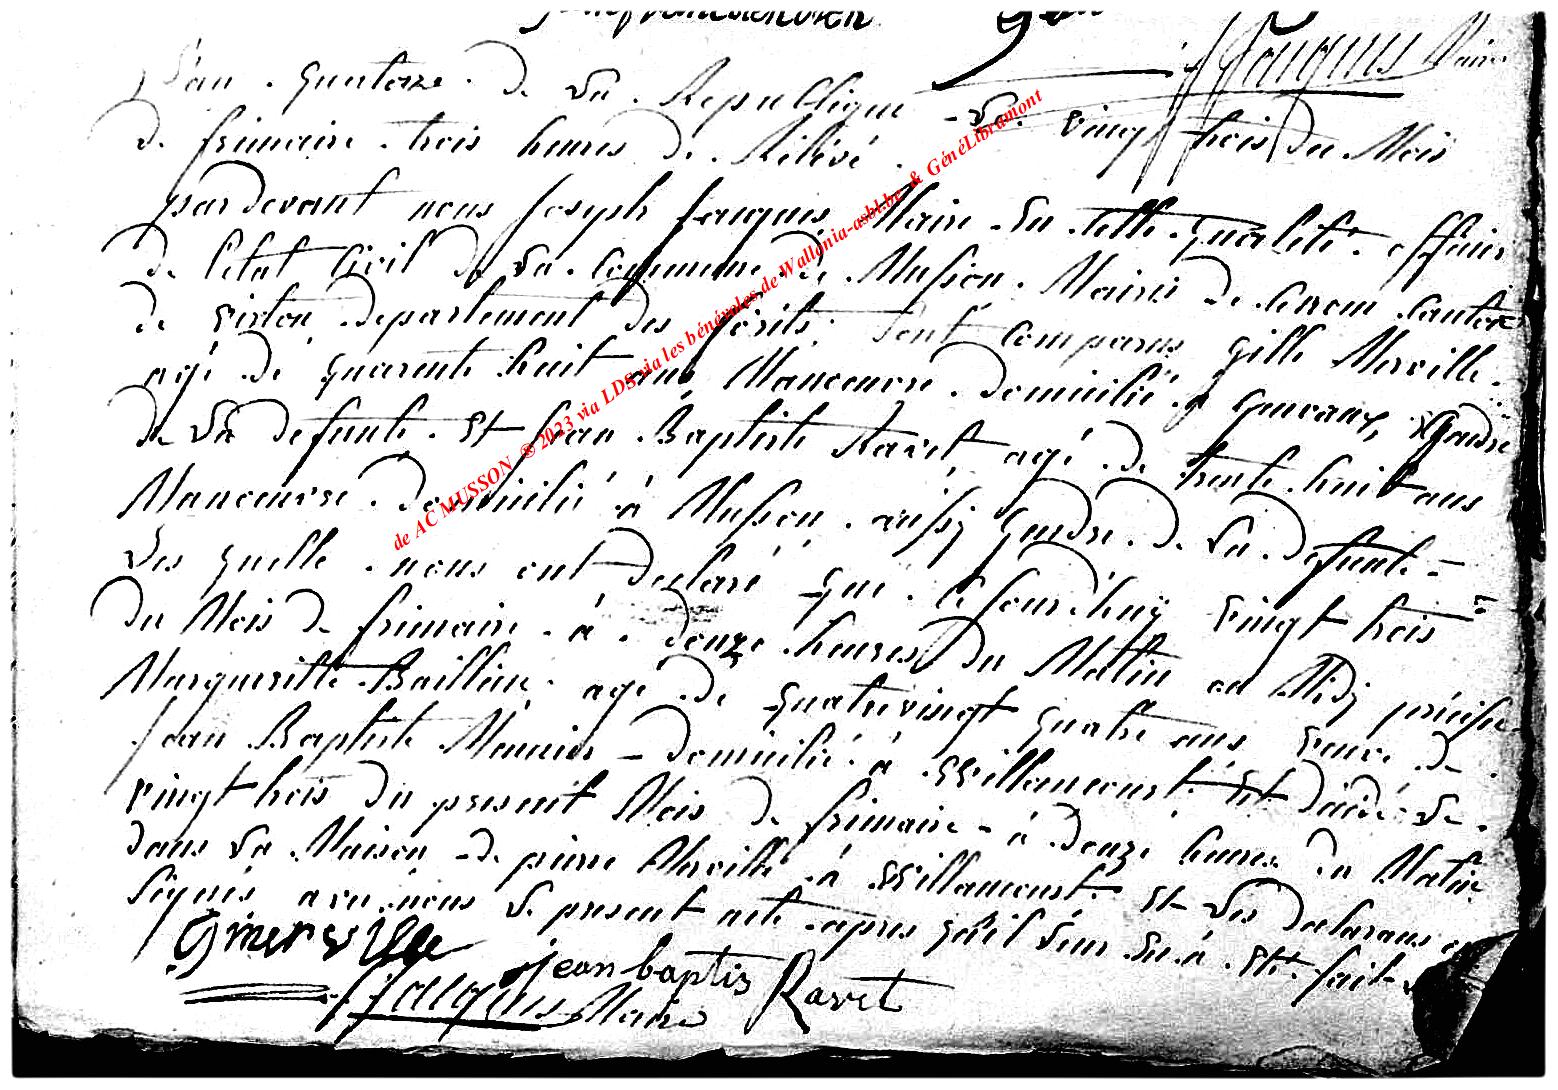 Maire
L'an quatorze de La Republique Le vingt trois du Mois
de frimaire trois heures de Rélévé
pardevant nous Joseph fauquis Maire En telle qualité officier
de l'etat Civil de La Commune de Musson Mairis de Canton
de virton departement des forêts Sont Comparus gille Merville
agé de quarente huit ans Manoeuvre domicilié a guevaux gendre
de La defunte et Jean Baptiste Ravet agé de trente huit ans
Manoeuvre domicilié à Musson aussi gendre de La defunte
Les quelle nous ont declaré que Ce Jourd'huy vingt trois
du Mois de frimaire à douze heures du Matin ou Midj précise
Margueritte Baillieu agé de quatrevingt quatre ans veuve de
Jean Baptiste Meunier domicilié à Willancourt Est décédé Le
vingt trois du present Mois de frimaire à douze heures du Matin
dans La Maison de pierre Merville à Willancourt et Les declarans
Signés avec nous Le present acte apres qu'il Leur En à Eté fait
G merville
jean baptis Ravet
fauquis Maire
de AC MUSSON ® 2023 via LDS via les bénévoles de Wallonia-asbl.be & GénéLibramont